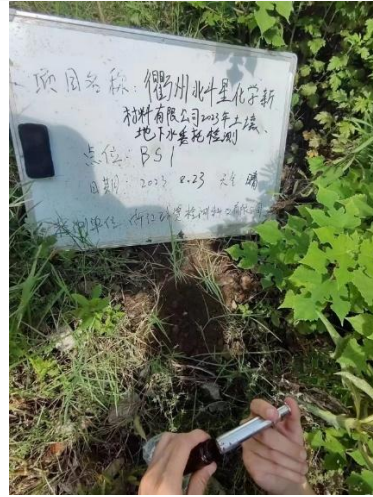 项目名称：衢州北斗星化学新
材料有限公司2023年土壤、
地下水委托检测
点位：BS1
日期：2023 8.23 天气 晴
单位：浙江 检测 有限公司